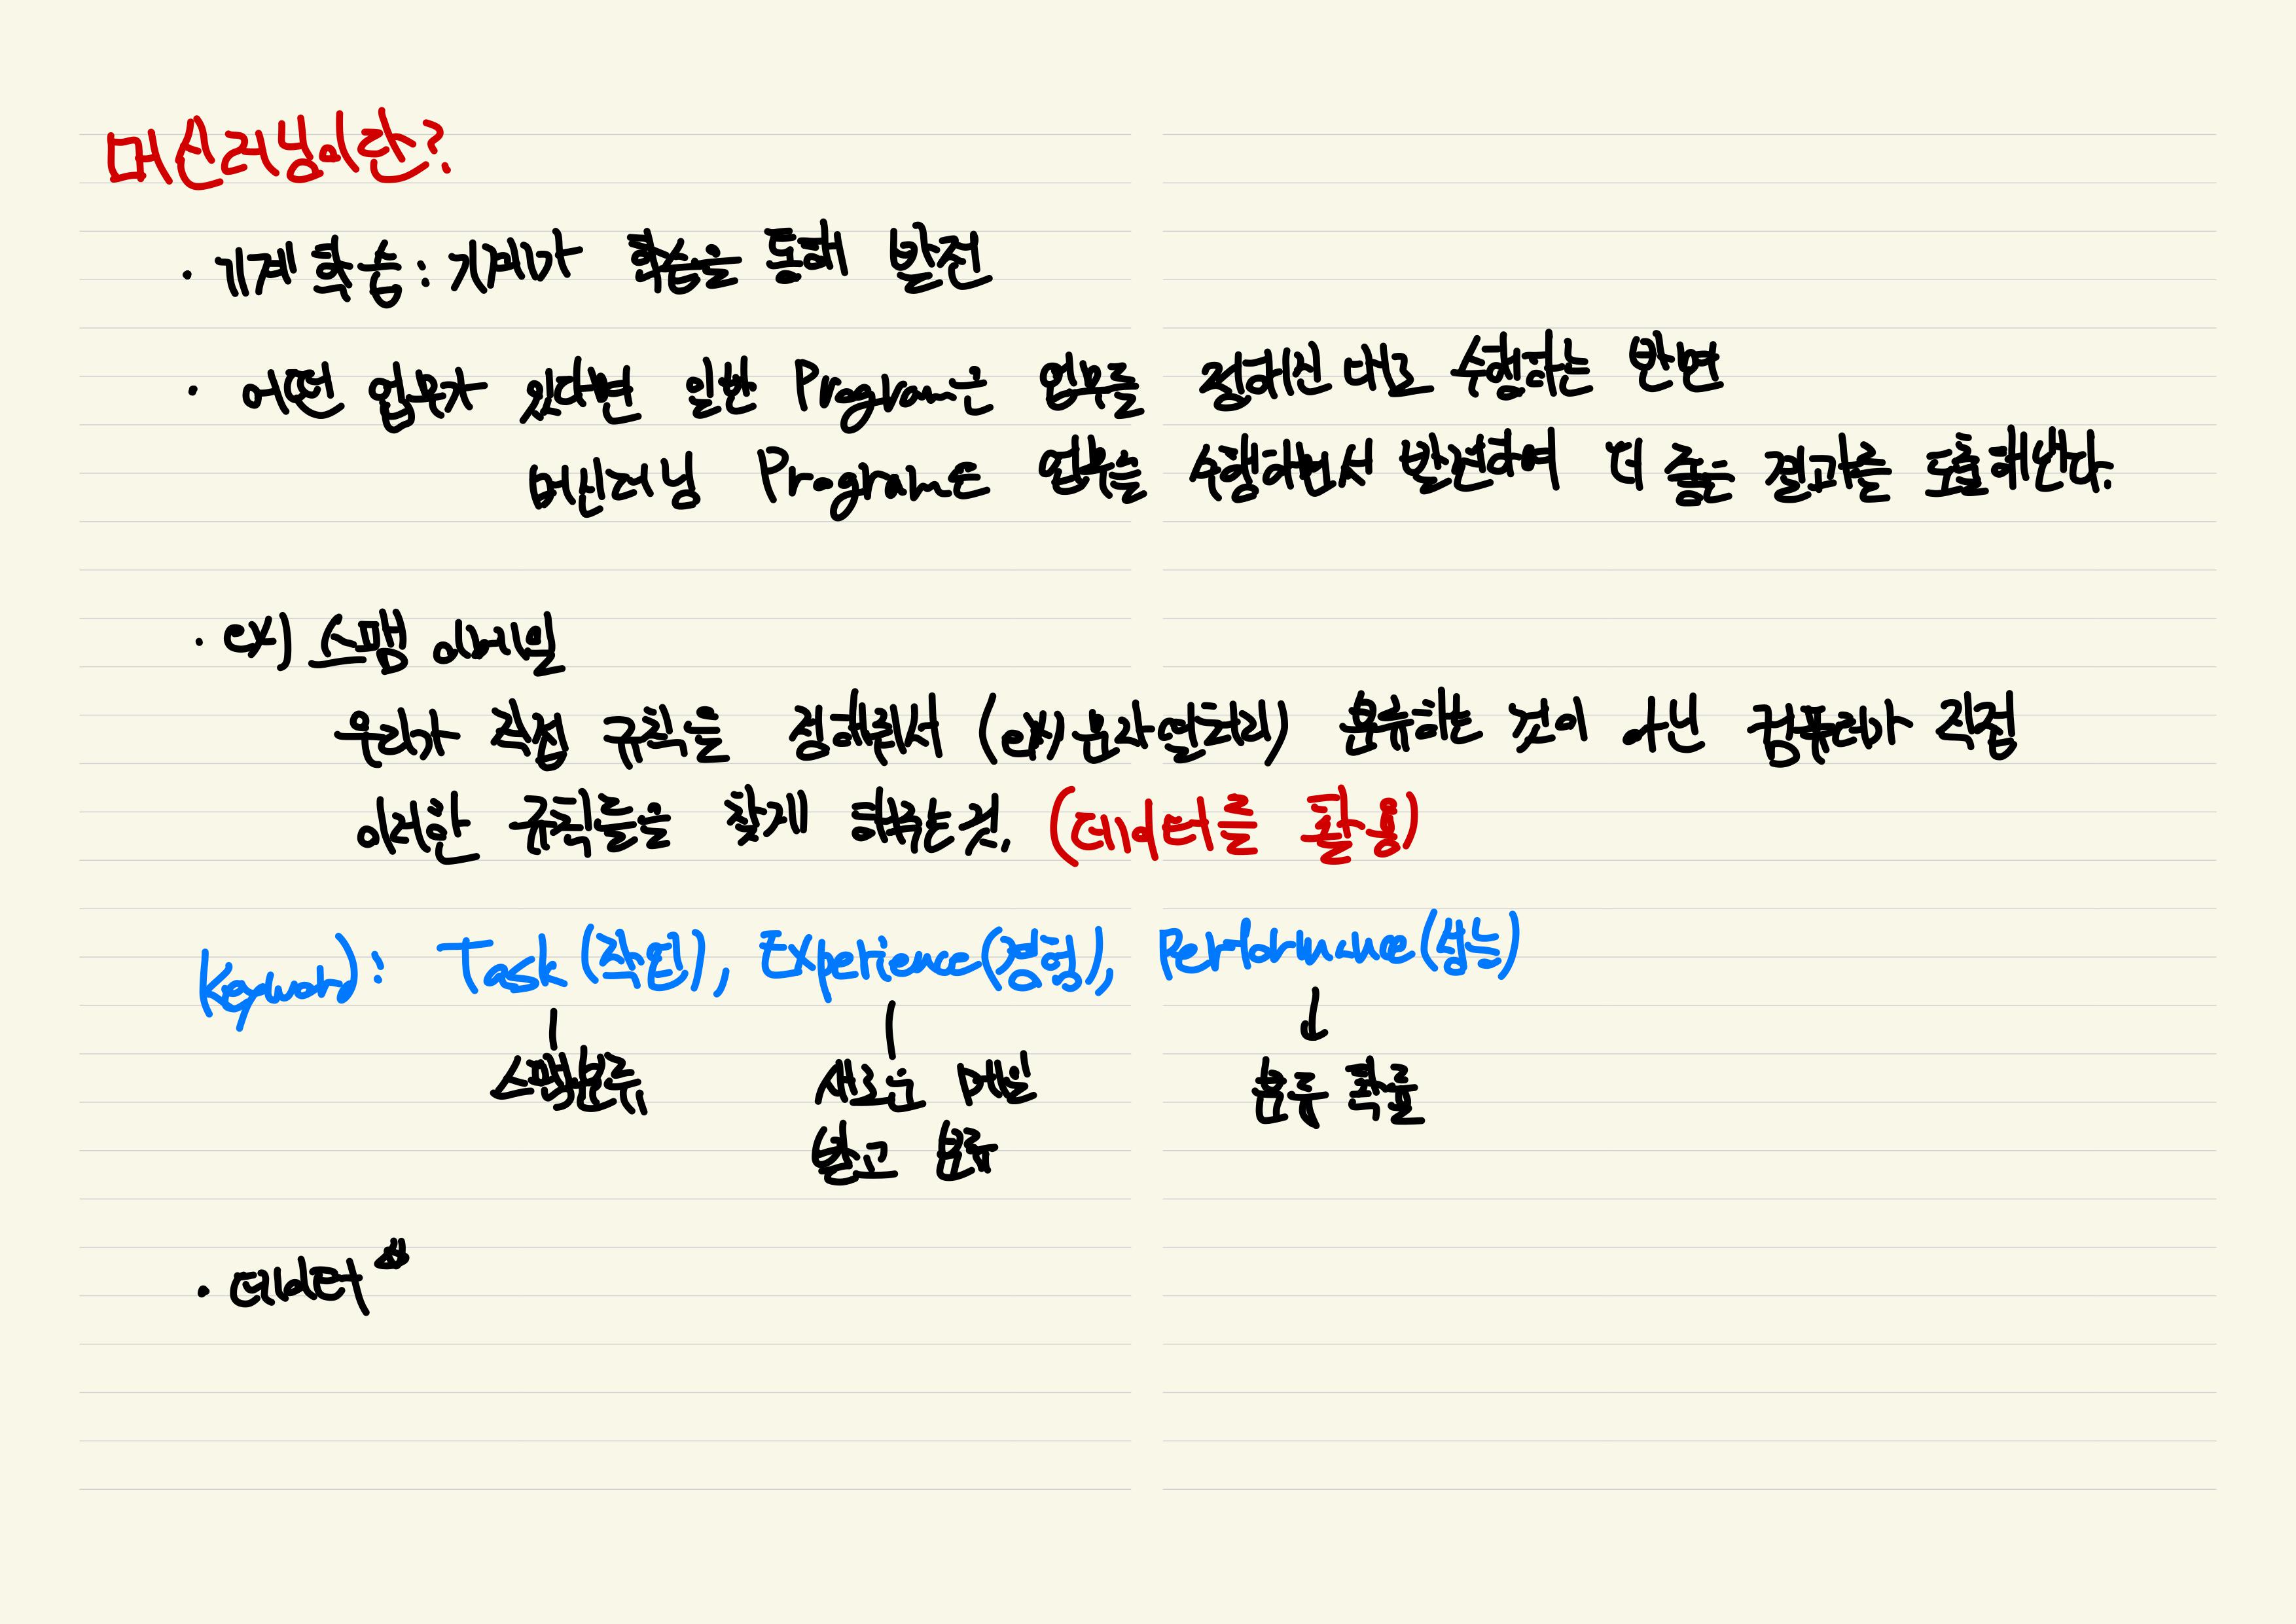 머신러닝이란?
· 기계 학습 : 기계가 학습을 통해 발전
· 어떤 업무가 있다면 일반 Program은 업무를 정해진 대로 수행하는 반면
머신러닝 Program은 업무를 수행하면서 발전하여 더 좋은 결과를 도출해낸다.
· ex) 스팸 이메일
우리가 직접 규칙을 정해줘서 (ex) 문자열처리) 분류하는 것이 아닌 컴퓨터가 직접
이러한 규칙들을 찾게 해주는것. (데이터를 활용)
Keyword : Task (작업), Experience(경험), Performance(성능)
스팸분류 새로운 메일 분류 확률
받고 분류
· 데이터